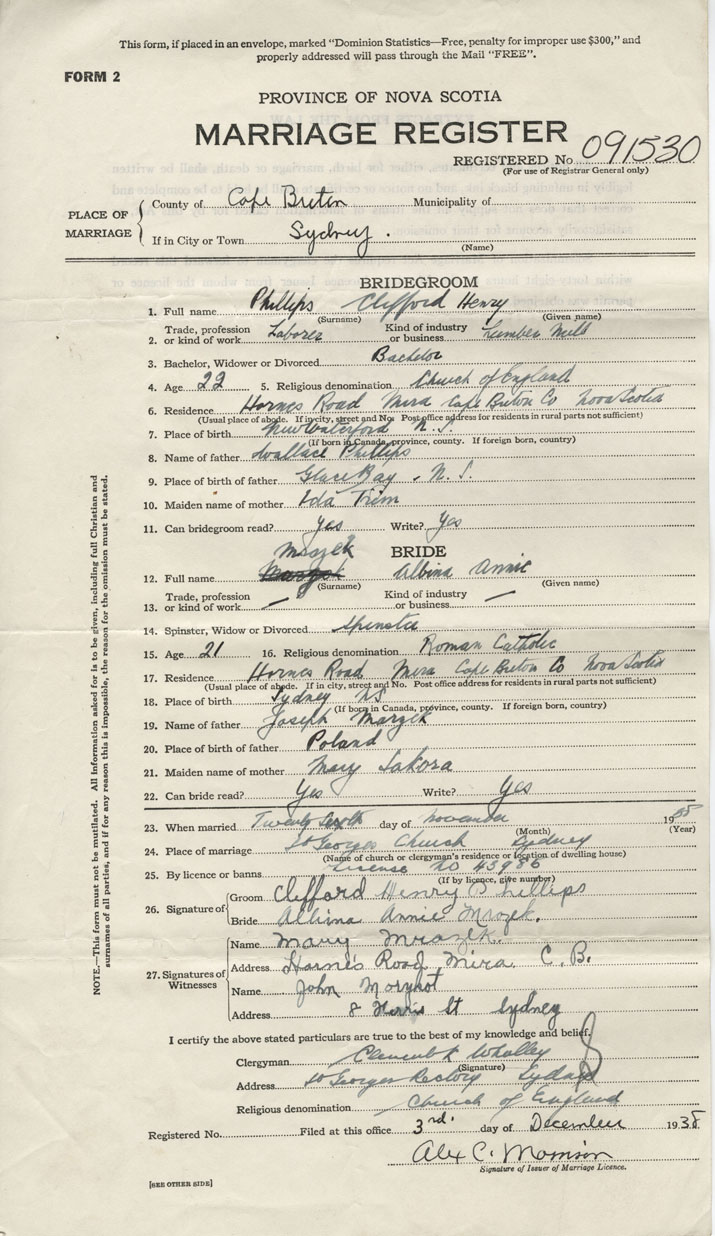 This form, if placed in an envelope, marked "Dominion Statistics—Free, penalty for improper use $300," and
properly addressed will pass through the Mail "FREE".
FORM 2
PROVINCE OF NOVA SCOTIA
MARRIAGE REGISTER
REGISTERED No 091530
(For use of Registrar General only)
PLACE OF MARRIAGE
County of Cape Breton Municipality of
If in City or Town Sydney.
(Name)
BRIDEGROOM
1. Full name Phillips Clifford Henry
(Surname) (Given name)
2. Trade, profession or kind of work Laborer Kind of industry or business Lumber Mill
3. Bachelor, Widower or Divorced Bachelor
4. Age 22 5. Religious denomination Church of England
6. Residence Hornes Road Mira Cape Breton Co Nova Scotia
(Usual place of abode. If in city, street and No. Post office address for residents in rural parts not sufficient)
7. Place of birth New Waterford N.S.
(If born in Canada, province, county. If foreign born, country)
8. Name of father Wallace Phillips
9. Place of birth of father Glace Bay. N.S.
10. Maiden name of mother Ida Trim
11. Can bridegroom read? Yes Write? Yes
BRIDE
12. Full name Mrozek Albina Annie
(Surname) (Given name)
13. Trade, profession or kind of work — Kind of industry or business —
14. Spinster, Widow or Divorced Spinster
15. Age 21 16. Religious denomination Roman Catholic
17. Residence Hornes Road Mira Cape Breton Co Nova Scotia
(Usual place of abode. If in city, street and No. Post office address for residents in rural parts not sufficient)
18. Place of birth Sydney NS
(If born in Canada, province, county. If foreign born, country)
19. Name of father Joseph Marzek
20. Place of birth of father Poland
21. Maiden name of mother Mary Sakora
22. Can bride read? Yes Write? Yes
23. When married Twenty Sixth day of November 1938
(Month) (Year)
24. Place of marriage St Georges Church Sydney
(Name of church or clergyman's residence or location of dwelling house)
25. By licence or banns License No 43986
(If by licence, give number)
26. Signature of
Groom Clifford Henry Phillips
Bride Albina Annie Mrozek.
27. Signatures of Witnesses
Name Mary Mrozek.
Address Horne's Road, Mira. C. B.
Name John
Address 8 St Sydney
I certify the above stated particulars are true to the best of my knowledge and belief.
Clergyman Clement Whalley
(Signature)
Address St Georges Rectory Sydney
Religious denomination Church of England
Registered No. Filed at this office 3rd. day of December 1938
Alex C. Morrison
Signature of Issuer of Marriage Licence.
[SEE OTHER SIDE]
NOTE.—This form must not be mutilated. All Information asked for is to be given, including full Christian and
surnames of all parties, and if for any reason this is impossible, the reason for the omission must be stated.